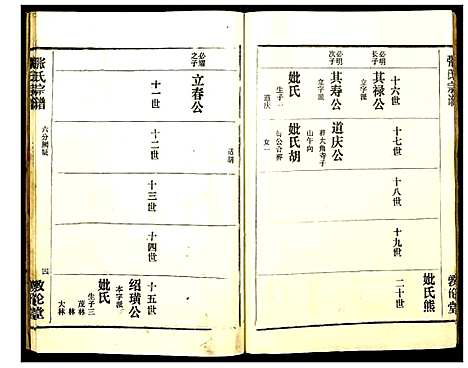 張氏宗譜
十六世
十七世
十八世
十九世
二十世
必明
長子
其禄公
立字派
必明
次子
其寿公
立字派
道庆公
葬大角寺子
山午向
妣氏
生子一
道庆
妣氏胡
与公合葬
女一
妣氏熊
敦伦堂
十一世
十二世
十三世
十四世
十五世
必耀
之子
立春公
绍璜公
本字派
妣氏
生子三
茂林
大林
張氏宗譜
六分
四
敦伦堂